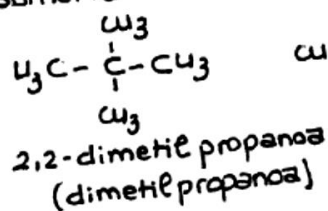 CH3
H3C - C - CH3 CH
CH3
2,2-dimetil propanoa
(dimetilpropanoa)